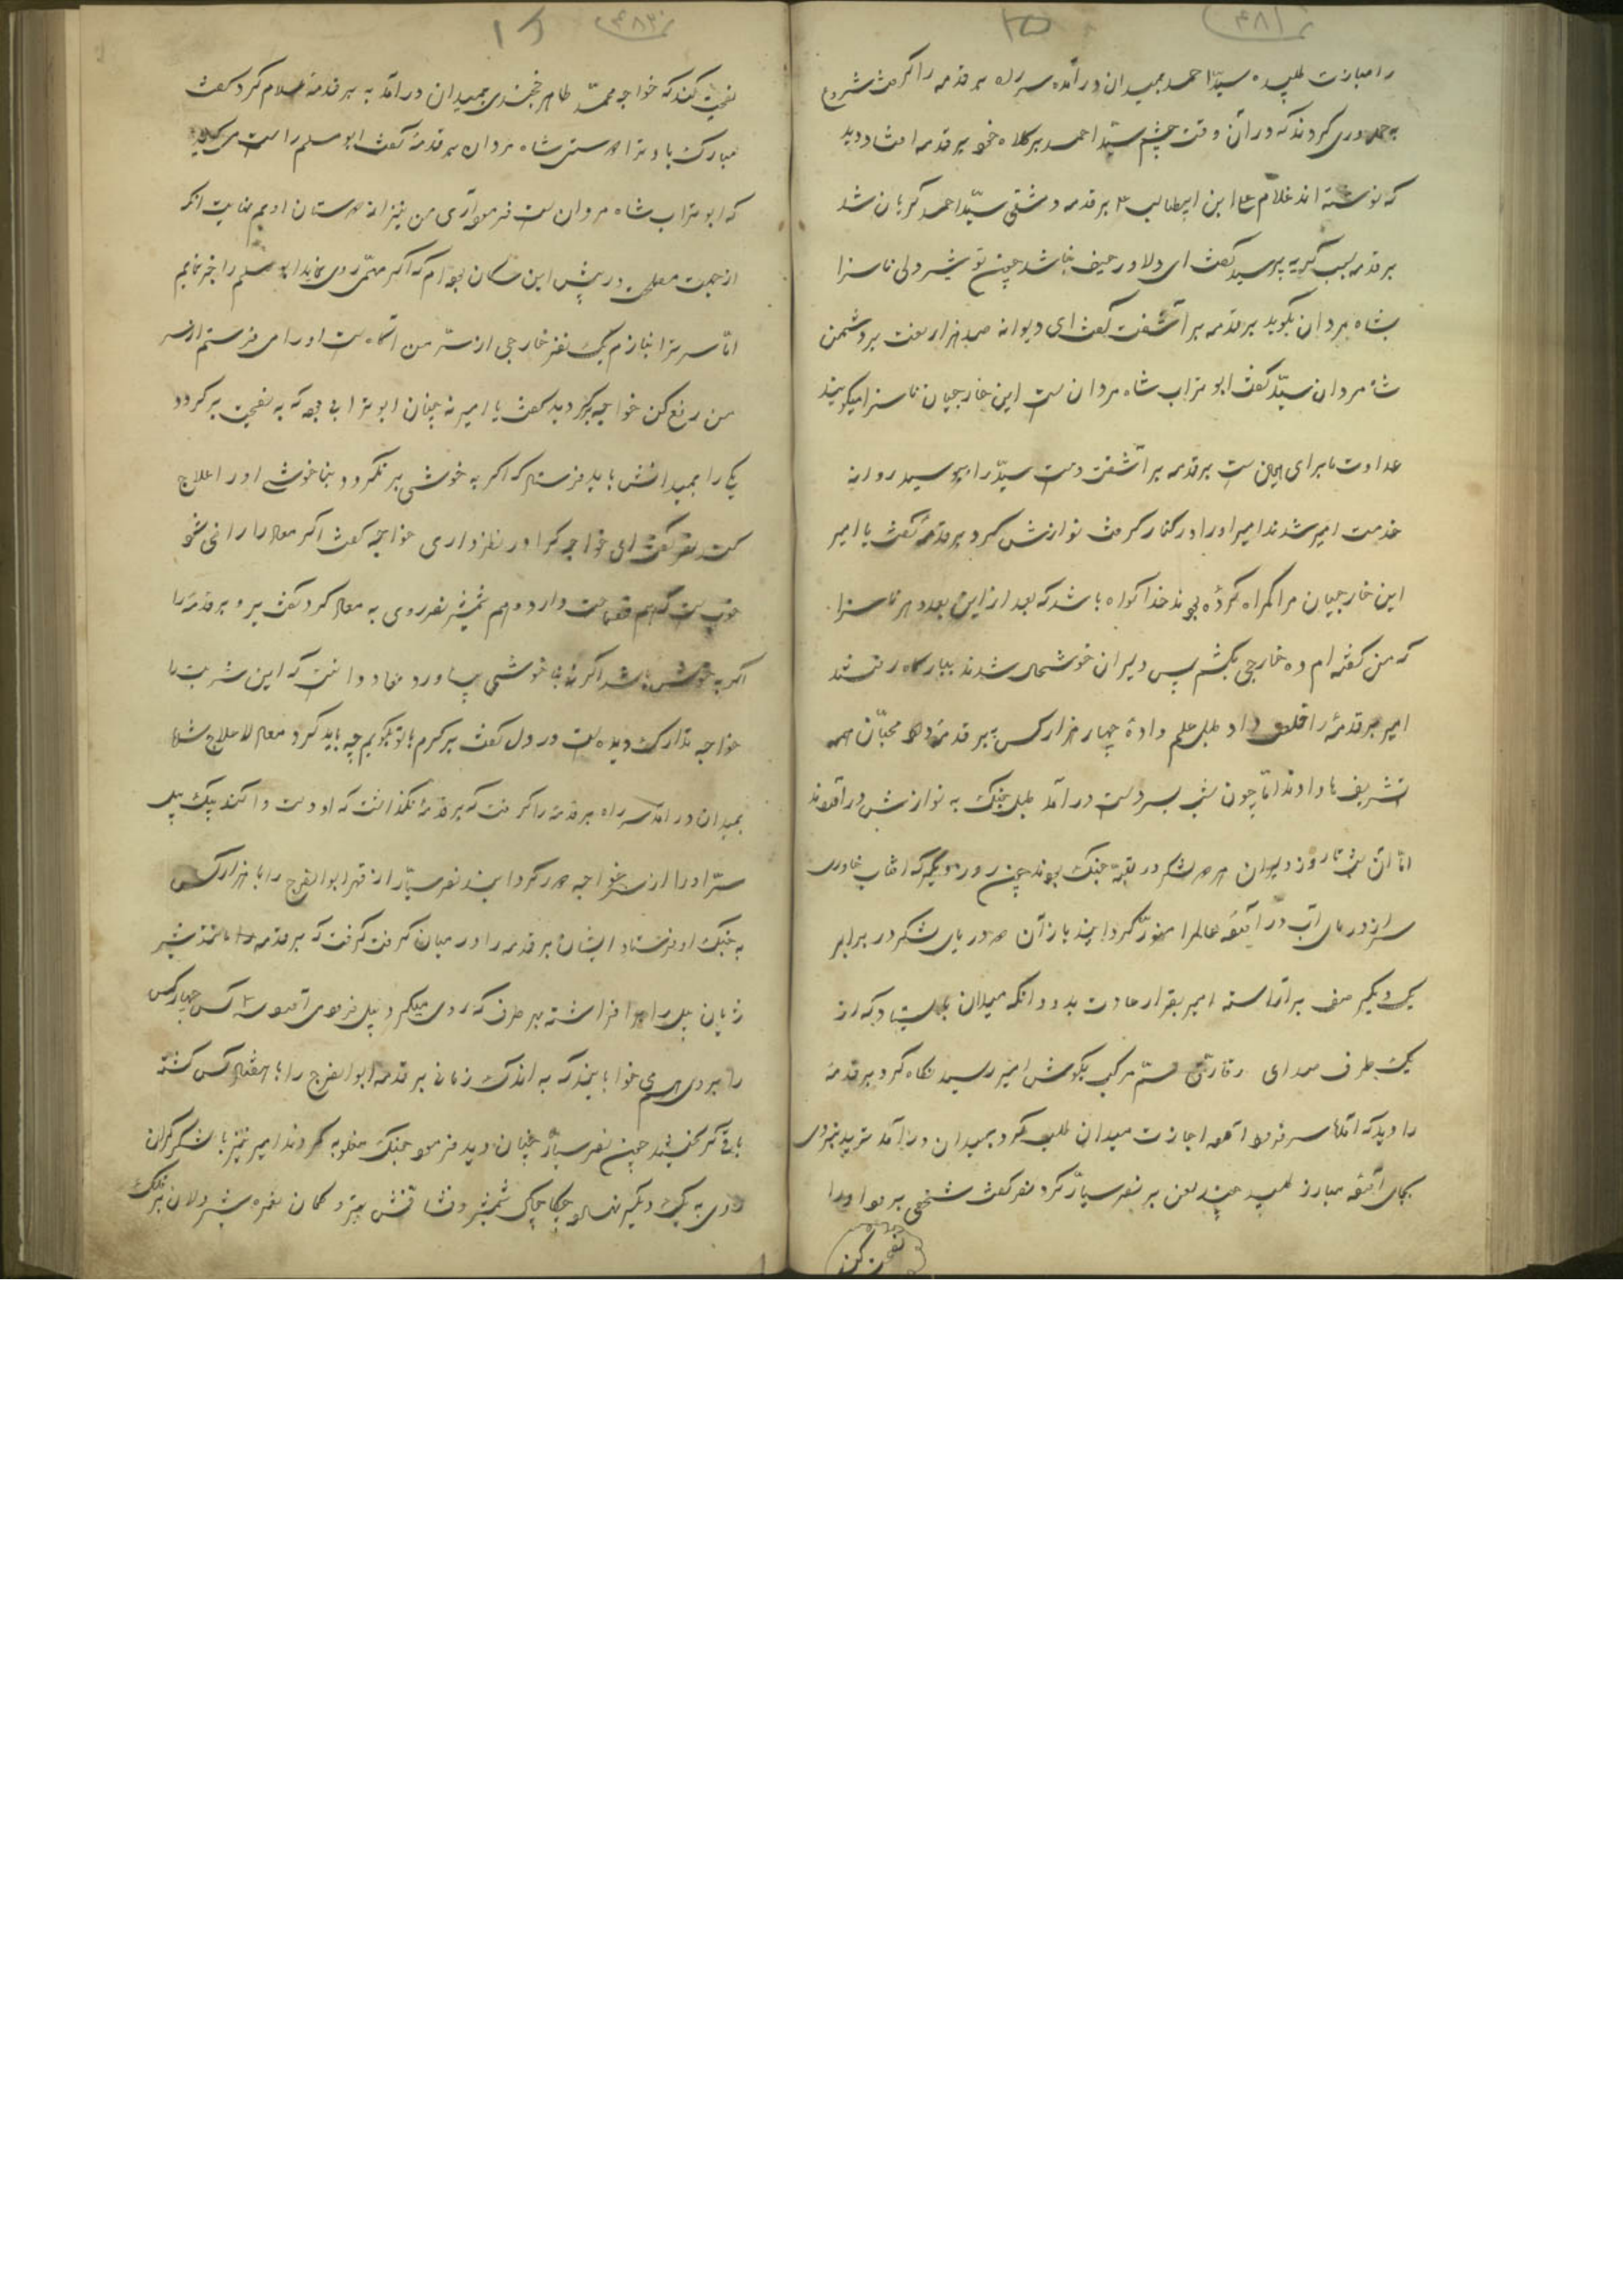 را مبارزت طلبید سیّد احمد بمیدان درآمده سر راه برقدمه را گرفت شروع
به حمدوری کردند که در آن وقت چشم سیّد احمد بر کلاه خود برقدمه افتاد دید
که نوشته اند غلام علی ابن ابیطالب برقدمه دمشقی سیّد احمد گریان شد
برقدمه سبب گریه پرسید گفت ای دلاور حیف نباشد چون تو شیردلی ناسزا
بشاه مردان بگوید برقدمه برآشفت گفت ای دیوانه صد هزار لعنت بر دشمن
شاه مردان سیّد گفت ابوتراب شاه مردان ست این خارجیان ناسزا میگویند
عداوت ما برای این ست برقدمه برآشفت دست سیّد را بوسید روانه
خدمت امیر شدند امیر او را در کنار گرفت نوازش کرد برقدمه گفت یا امیر
این خارجیان مرا گمراه کرده بودند خدا گواه باشد که بعد از این بعدد هر ناسزا
که من گفته ام ده خارجی بکشم پس دلیران خوشحال شدند ببارگاه رفتند
امیر برقدمه را داد طبل علم داده چهار هزار کس به برقدمه داد محبّان همه
تشریف ها دادند امّا چون شب بر سر دست درآمد طبل جنگ به نوازش درآوردند
امّا آن شب تا روز دلیران هر دو لشکر در تهیّه جنگ بودند چون روز دیگر که آفتاب خاوری
سر از دریای آب درآورد عالم را منوّر گردانید باز آن دو دریای لشکر در برابر
یک دیگر صف برآراسته امیر بقرار عادت بدود آنکه میدان بایستاد که از
یک طرف صدای سمّ مرکب بگوش امیر رسید نگاه کرد برقدمه
را دید که آمد سر فرود آورد اجازت میدان طلب کرد بمیدان درآمد
بجای آورد مبارز طلبید چند لعن بر نصر سیّار کرد نصر گفت شخصی برود او را
نصیحت کند
نصیحت کند که خواجه محمّد طاهر خجندی بمیدان درآمد به برقدمه سلام کرد گفت
مبارک باد ترا دوستی شاه مردان برقدمه گفت ابومسلم راست می گوید
که ابوتراب شاه مردان ست فرمود آری من نیز از دوستان اویم غایت آنکه
از جهت مصلحت در پیش این سگان بوده ام که اگر مهمّی روی نماید ابومسلم را خبر نمایم
امّا سر ترا نبازم یک نفر خارجی از سرّ من آگاه ست او را می فرستم از سر
من رفع کن خواجه برگردید گفت یا امیر نه چنان ابوترابی بود که به نصیحت برگردد
یکی را بمیدانش باید فرستاد که اگر به خوشی برنگردد بناخوشی او را علاج
کند نصر گفت ای خواجه کرا در نظر داری خواجه گفت اگر معاد را راضی شو
خوب ست که هم فصاحت دارد و هم شمشیر نصر روی به معاد کرد گفت برو برقدمه را
اگر به خوشی باشد اگر بنا خوشی بیاورد معاد دانست که این شربت را
خواجه تدارک دیده است در دل گفت برگردم با تو بگویم چه باید کرد معاد لاعلاج شد
بمیدان درآمد سر راه برقدمه را گرفت که برقدمه نگذاشت که او دست واکند بیک پیل
سرّ او را از سر خواجه دور گردانید نصر سیّار از قهر ابوالفرج را با هزار کس
به جنگ او فرستاد ایشان برقدمه را در میان گرفت گرفت که برقدمه مانند شیر
ژیان پیل را برافراشته بهر طرف که روی میکرد پیل فرود می آورد سه کس چهار کس
را بر روی هم می خوابانید که به اندک زمانی برقدمه ابوالفرج را با هفتاد کس کشت
باقی گریختند چون نصر سیّار چنان دید فرمود جنگ مغلوبه کردند امیر نیز با لشکر گران
روی به یک دیگر نهادند چکاچاک شمشیر و فشافش تیر و کمان نعره شیر دلان بر فلک